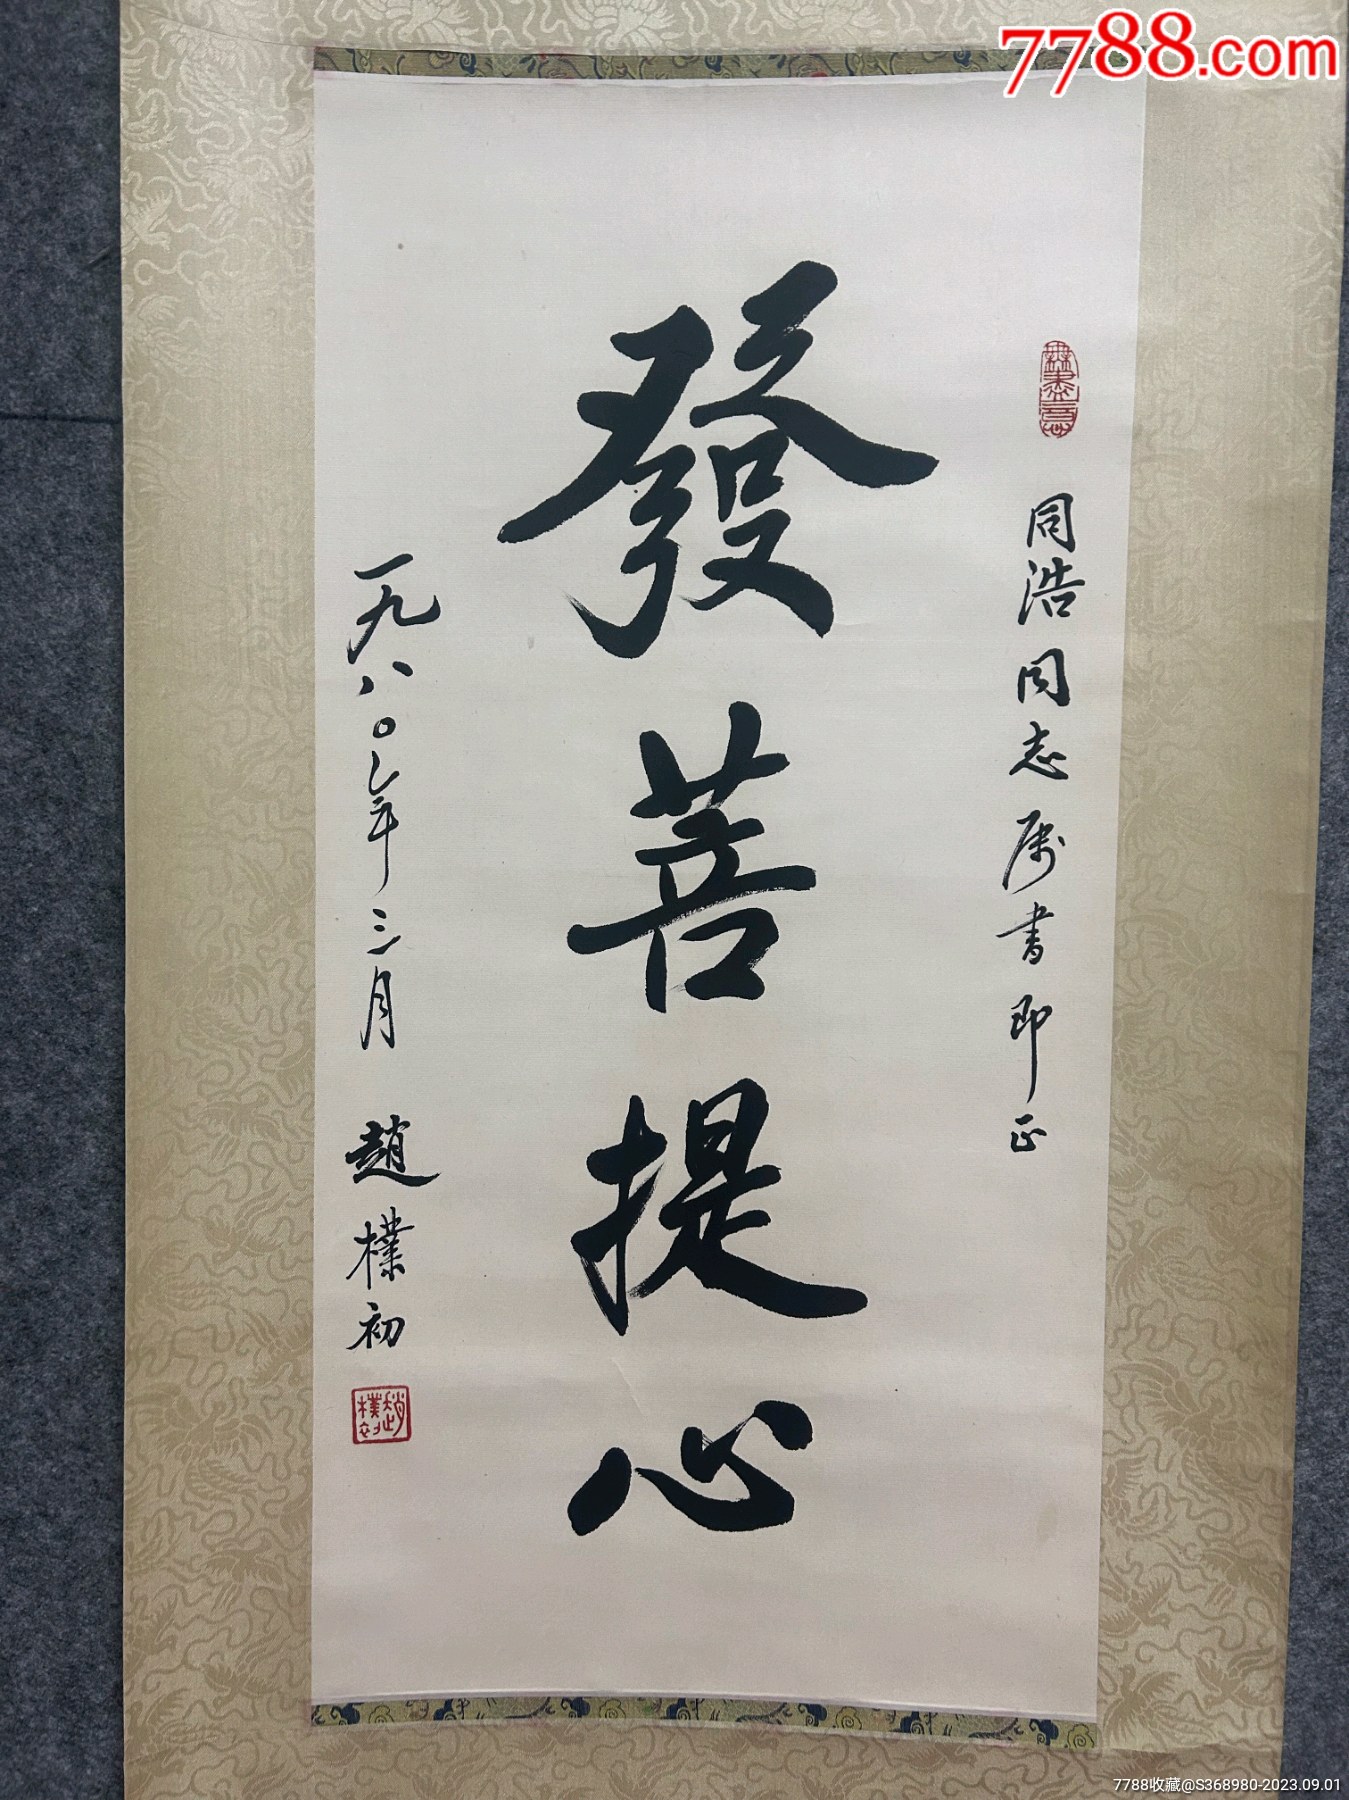 7788.com
無盡意
同浩同志属书即正
發菩提心
一九八〇年三月 趙樸初
趙樸初
7788收藏@S368980-2023.09.01